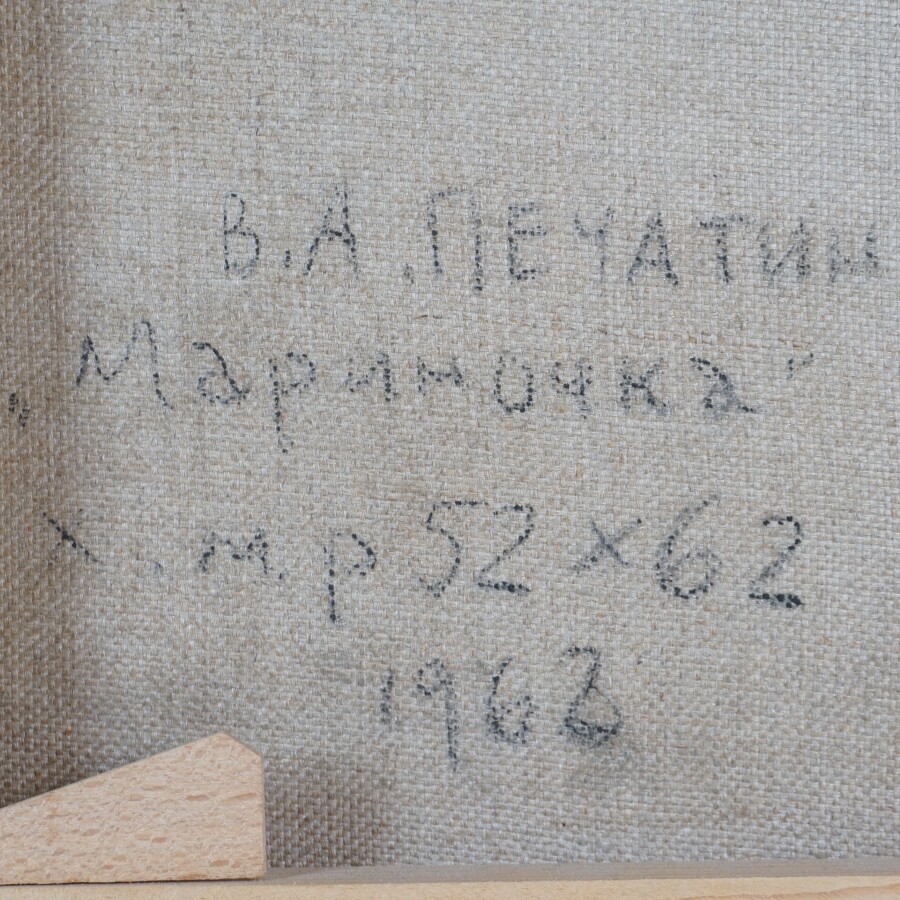 В.А. ПЕЧАТИН
„Мариночка"
х.м. р 52×62
1963